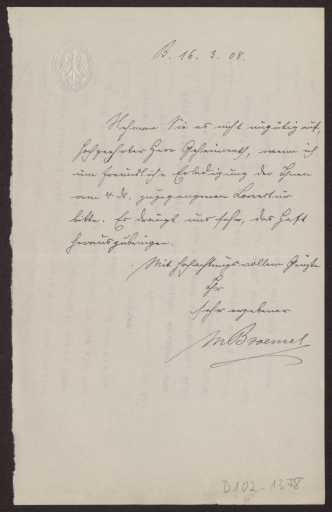 B. 16. 3. 08.
Nehmen Sie es nicht ungütig auf,
hochgeehrter Herr Geheimrath, wenn ich
um freundliche Erledigung der Ihnen
am 4. ds. zugegangenen Korrektur
bitte. Es drängt uns sehr, das Heft
herauszubringen.
Mit hochachtungsvollem Gruße
Ihr
sehr ergebener
MBroemel
D102-1378